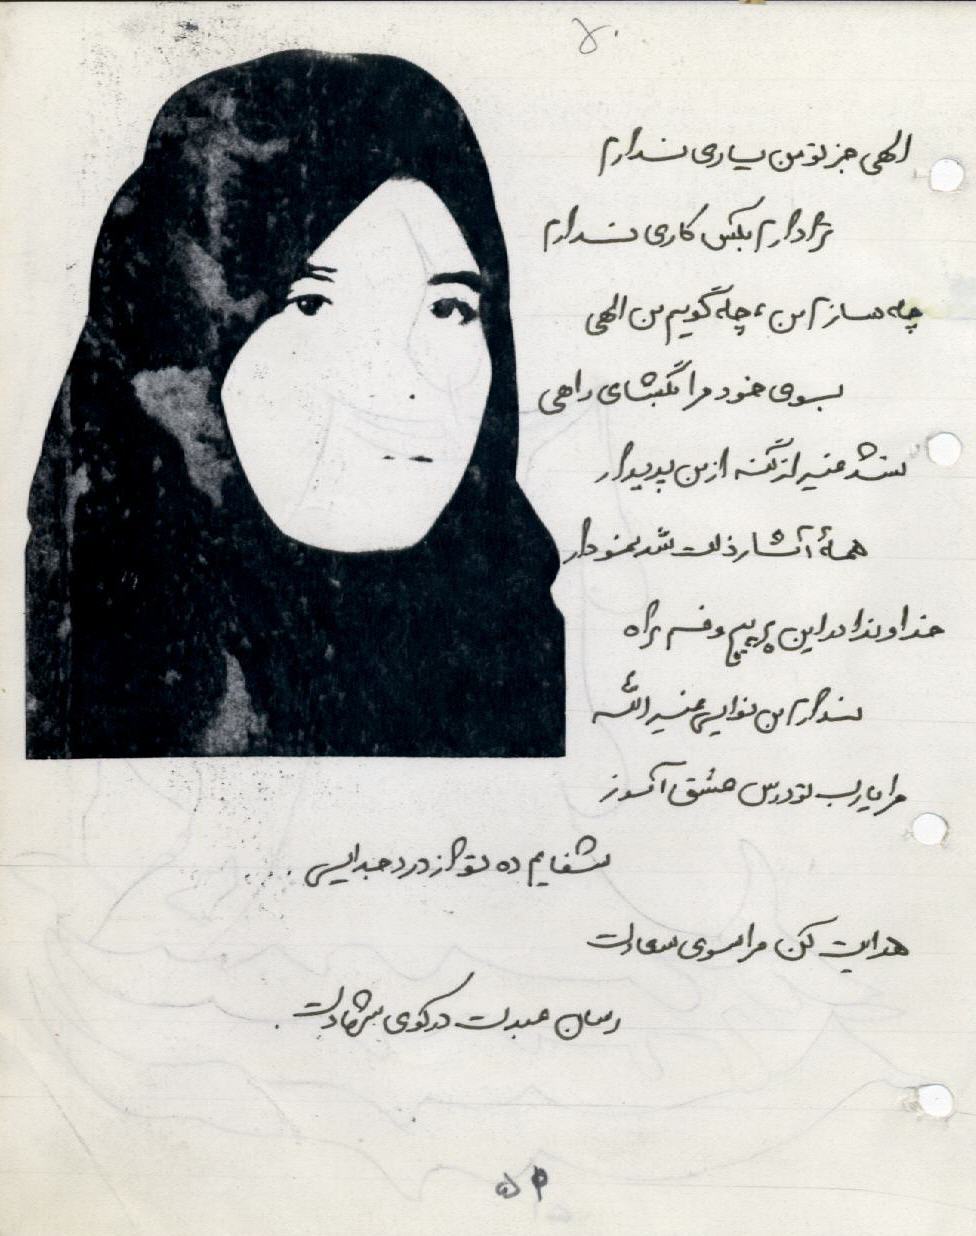 ۷۰
الهی جز تو من یاری ندارم
ترا دارم بکس کاری ندارم
چه سازم من ، چه گویم من الهی
بسوی خود مرا بگشای راهی
نشد غیر از گنه از من پدیدار
همهٔ آثار ذلت شد نمودار
خداوندا در این پر پیچ و خم راه
ندارم من نوایی غیر الله
مرا یارب تو درس عشق آموز
شفایم ده تو از درد جدایی
هدایت کن مرا سوی سعادت
رسان عبدت در کوی شهادت